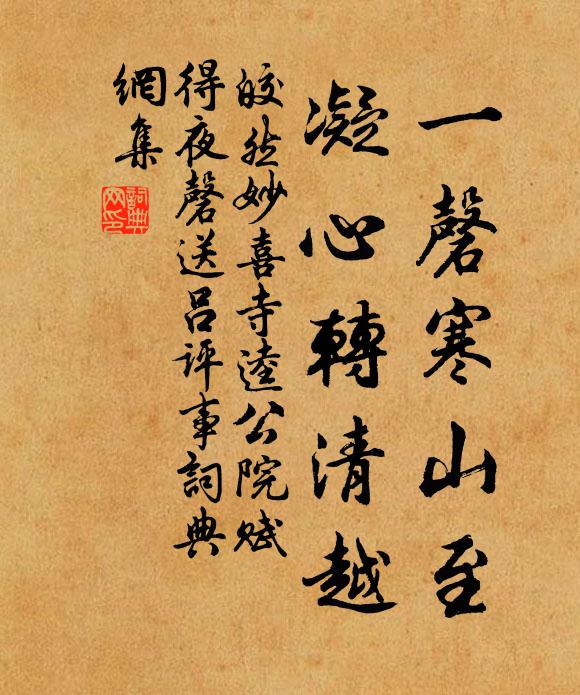 一磬寒山至
凝心轉清越
皎然妙喜寺逵公院賦
得夜磬送呂評事詞典
網集
詞典
网印